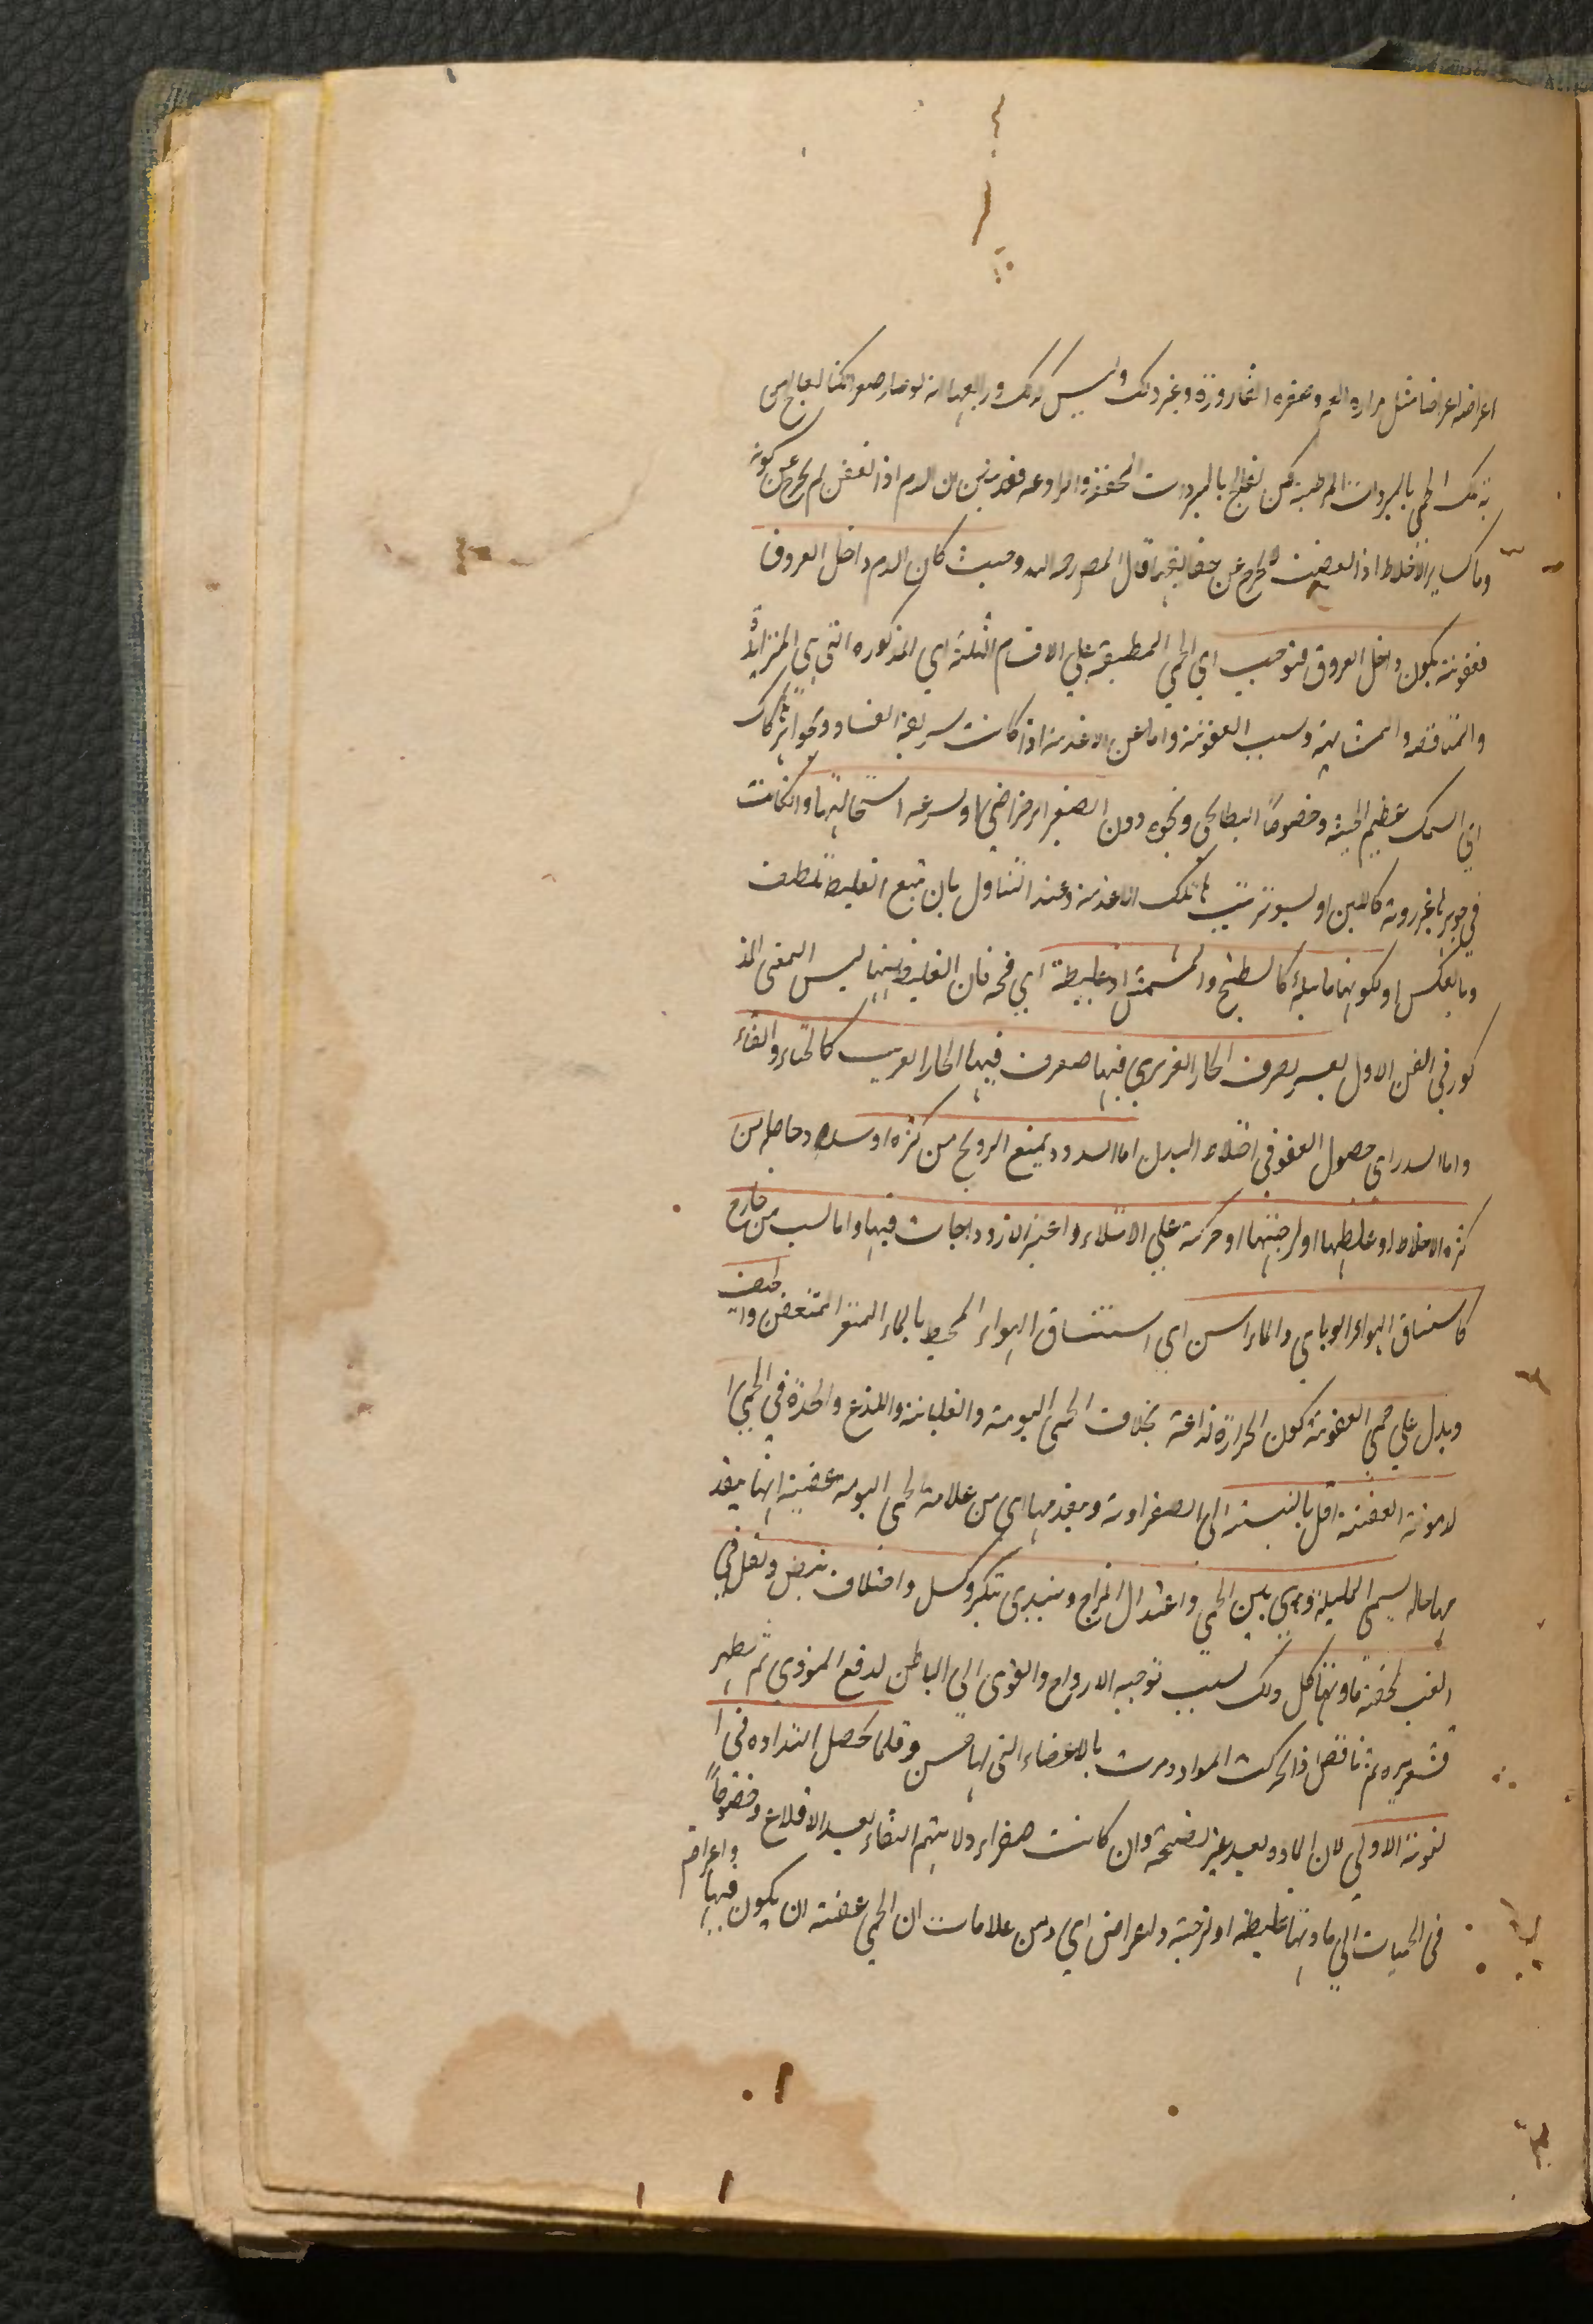 اعراضه اعراضا مثل مراره الفم وصفره القاروره وغير ذلك وليس كذلك ورابعها انه لو صار صفرا لكنا نعالج من
به تلك الحمى بالمبردات المرطبه لكن نعالج بالمبردات المجففه والرادعه فقد تبين ان الدم اذا تعفن لم يخرج عن كونه
دما كساير الاخلاط اذا تعفنت لا تخرج عن حقايقها قال المص رحمه الله وحيث كان الدم داخل العروق
فعفونته يكون داخل العروق فتوجب اي الحمى المطبقه على الاقسام الثلثه اي المذكوره التي هي المتزايدة
والمتناقصه والمتشابهة وسبب العفونة واما من الاغذية اذا كانت سريعة الفساد وجواهرها كالسمك
اي السمك عظيم الجثة وخصوصاً البطايحي ونحوه دون الصغير الرضراضي او لسرعة استحالتها وان كانت
في جوهرها غير ردية كاللبن او لسوء ترتيب تلك الاغذية وعند التناول بان يتبع الغليظ لطيف
وبالعكس او لكونها مائية كالبطيخ والمشمش او غليظة اي فجة فان الغليظ ههنا ليس المعنى المذ
كور في الفن الاول يعسر تصرف الحار الغريزي فيها فتصرف فيها الحار الغريب كالخيار والقثاء
واما السدد اي حصول العفونة في اخلاط البدن اما لسدد يمنع الترويح من كثره او سدد حاصله من
كثرة الاخلاط او غلظها او لزوجتها او حركة على الامتلاء واعتبر الازدواجات فيها واما لسبب من خارج
كاستنشاق الهواء الوبائي والماء الآسن اي استنشاق الهواء المحيط بالماء المتغير المتعفن والجيف
ويدل على حمى العفونة كون الحرارة لذاعة بخلاف الحمى اليومية والغليانية واللذع والحدة في الحمى ا
لدموية العفنة اقل بالنسبة الى الصفراوية ويتقدمها اي من علامة الحمى اليومية عفنية انها يتقد
مها حاله يسمى المليلة وهي بين الحمى واعتدال المزاج ويبتدي بتكسر وكسل واختلاف نبض وثقل في
القلب لخفة ما وتهيأ كل ذلك بسبب توجيه الارواح والقوى الى الباطن لدفع الموذي ثم يظهر
قشعريره ثم نافض اذا تحركت المواد ومرت بالاعضاء التي لها حس وقلما يحصل النداوه في ا
لنوبة الاولى لان المادة بعد غير نضيجة وان كانت صفراء ولا يتم النقاء بعد الاقلاع وخصوصاً
في الحميات التي مادتها غليظة او لزجة والاعراض اي ومن علامات ان الحمى عفنة ان يكون فيها
واعراض